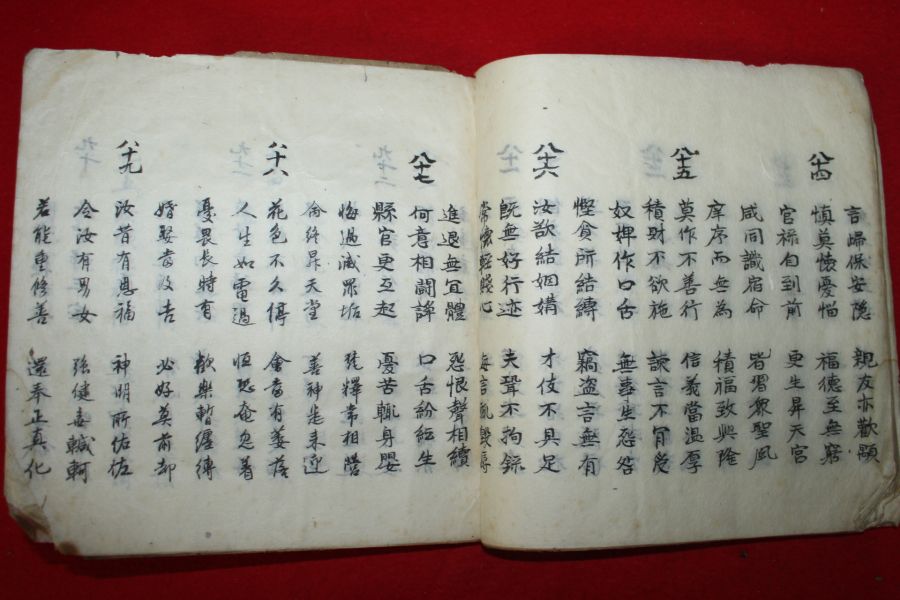 言歸保安隐 親友亦歡顯
八十四
慎莫懷憂惱 福德至無窮
官禄自到前 更生昇天宮
咸同識宿命 皆習衆聖風
庠序而無為 積福致興隆
八十五
莫作不善行 信義當溫厚
積財不欲施 諛言不肯受
奴婢作口舌 無喜生怨咎
慳貪所結縛 竊盗言無有
八十六
汝欲結姻媾 才伎不具足
既無好行迹 夫聟不拘錄
常懷輕賤心
進退無宜體 怨恨聲相續
八十七
何意相鬪諍 口舌紛紜生
縣官更互起 憂苦輒身嬰
悔過滅罪垢 釋常相營
命終昇天堂 善神悉來迎
八十八
花色不久得 會當有萎落
人生如電過 恒恐奄忽著
憂畏長時有 歡樂暫纏縛
婚娶當改吉 必好莫前却
八十九
汝昔有恩福 神明所佑佐
令汝有男女 強健無轗軻
若能重修善 還奉正真化